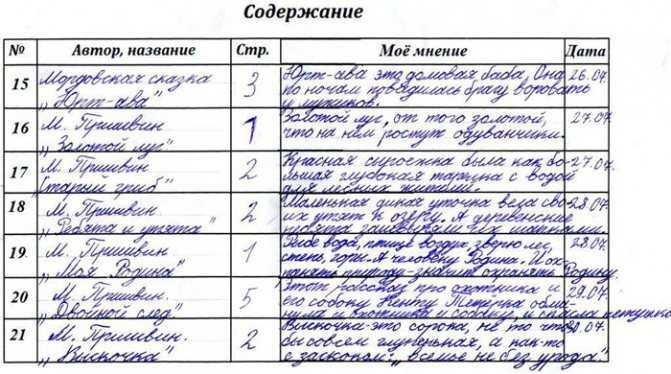 Содержание
№ Автор, название Стр. Моё мнение Дата
15 Мордовская сказка 3 Юрт-ава это домовая баба. Она 26.07.
„Юрт-ава" по ночам повадилась брагу воровать
у мужиков.
16 М. Пришвин 1 Золотой луг, от того золотой, 27.07.
„Золотой луг" что на нём ростут одуванчики.
17 М. Пришвин 2 Красная сыроежка была как бо- 27.07.
„Старый гриб" льшая глубокая тарелка с водой
для лесных жителей.
18 М. Пришвин. 2 Маленькая дикая уточка вела сво- 28.07.
„Ребята и утята" их утят к озеру. А деревенские
ребята закидывали их шапками.
19 М. Пришвин 1 Рыбе вода, птице воздух, зверю лес, 28.07.
„Моя Родина" степь, горы. А человеку Родина. И ох-
ранять природу-значит охранять Родину.
20 М. Пришвин. 5 Этот рассказ про охотника и 29.07.
„Двойной след" его собаку Кенту. Тетёрка обма-
нула и охотника и собаку, и спасла петушков
21 М. Пришвин. 2 Выскочка-это сорока, не то что 30.07.
„Выскочка" бы совсем глупенькая, а как-то
с заскоком: „в семье не без урода"